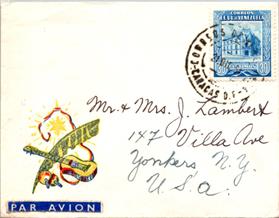 CORREOS
E.E.U.U. DE VENEZUELA
30
CORREOS
CARACAS D.F.
Mr & Mrs. J. Lambert
147 Villa Ave
Yonkers N.Y.
U.S.A.
PAR AVION